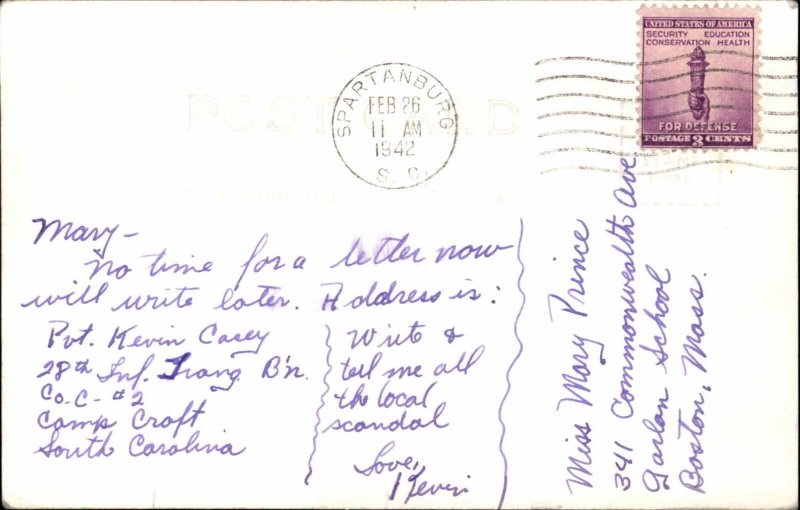 POST CARD
SPARTANBURG
FEB 26
11 AM
1942
S. C.
UNITED STATES OF AMERICA
SECURITY EDUCATION
CONSERVATION HEALTH
FOR DEFENSE
POSTAGE 3 CENTS
Mary-
No time for a letter now
will write later. Address is:
Pvt. Kevin Casey
28th Inf. Trang. B'n.
Co. C - #2
Camp Croft
South Carolina
Write &
tell me all
the local
scandal
Love,
Kevin
Miss Mary Prince
341 Commonwealth Ave
Garlan School
Boston, Mass.